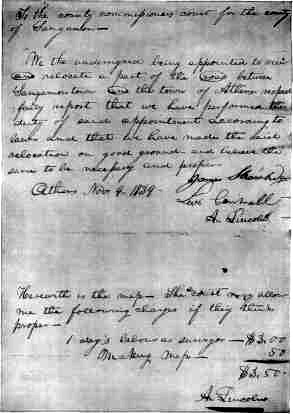 To the county commissioners court for the county
of Sangamon—
We the undersigned being appointed to view
and relocate a part of the road between
Sangamontown and the town of Athens respect
fully report that we have performed the
duty of said appointment according to
law and that we have made the said
relocation on good ground and believe the
same to be necessary and proper.
Athens Nov. 4. 1834. James
Levi Cantrall
A. Lincoln
Herewith is the map— The court may allow
me the following charges if they think
proper—
1 day's labour as surveyor — $3.00
Making map — 50
$3.50
A. Lincoln